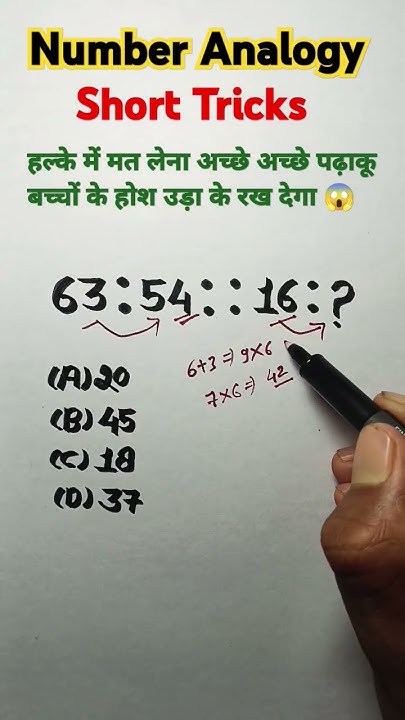 Number Analogy
Short Tricks
हल्के में मत लेना अच्छे अच्छे पढ़ाकू
बच्चों के होश उड़ा के रख देगा 😱
63:54::16:?
6+3⇒9×6
7×6⇒42
(A) 20
(B) 45
(C) 18
(D) 37